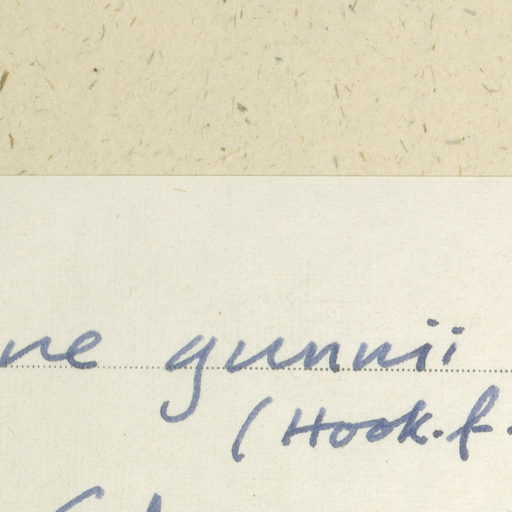 ne gunnii
(Hook.f.